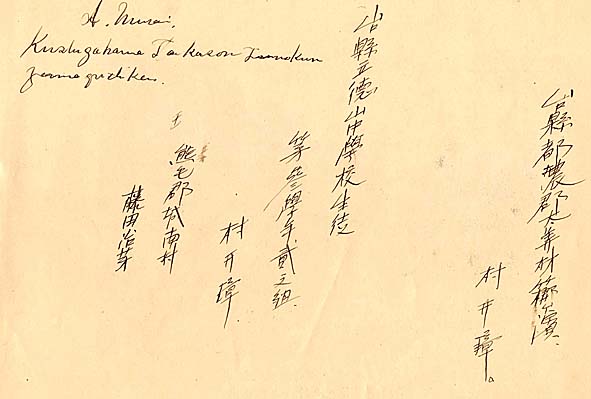 A. Murai.
Kushigahama Takason Tsunokun
yamaguchiken.
山縣都濃郡太華村櫛ヶ濱
村井璋
山縣立德山中學校生徒
第參學年貳之組
村井璋
熊毛郡城南村
藤田